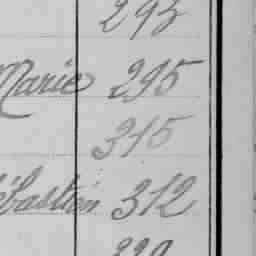 293
Marie 295
315
ébastien 312